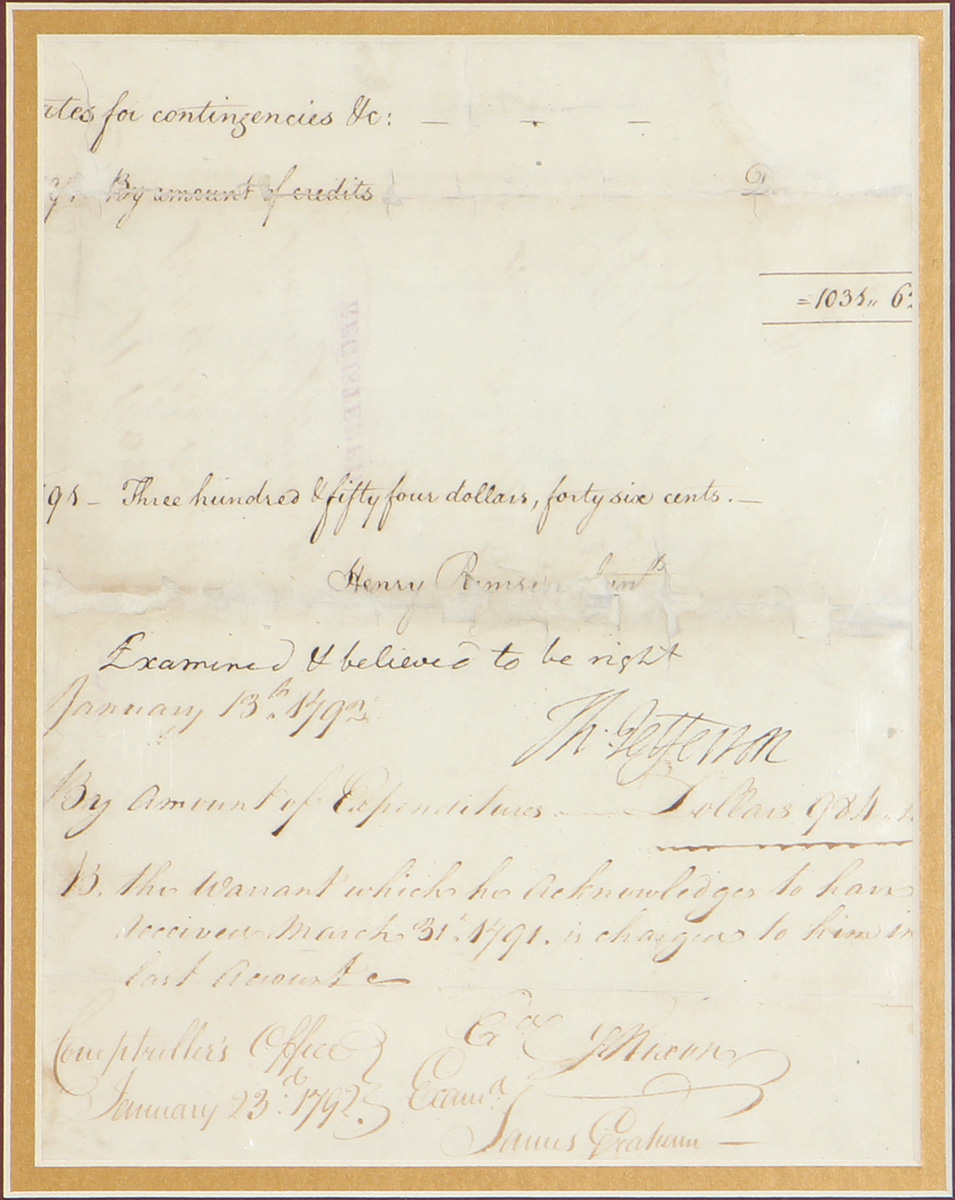 for contingencies &c: — — —
By amount of credits
= 1035,, 6
— Three hundred & fifty four dollars, forty six cents. —
Henry Remsen Junr.
Examined & believed to be right
January 13th. 1792
Th: Jefferson
By Amount of Expenditures — Dollars 984
B. the Warrant which he Acknowledges to have
received March 31st. 1791. is charged to him in
last Account
Comptroller's Office
January 23d. 1792.
Exd.
Examd.
James Graham —
REGISTERED